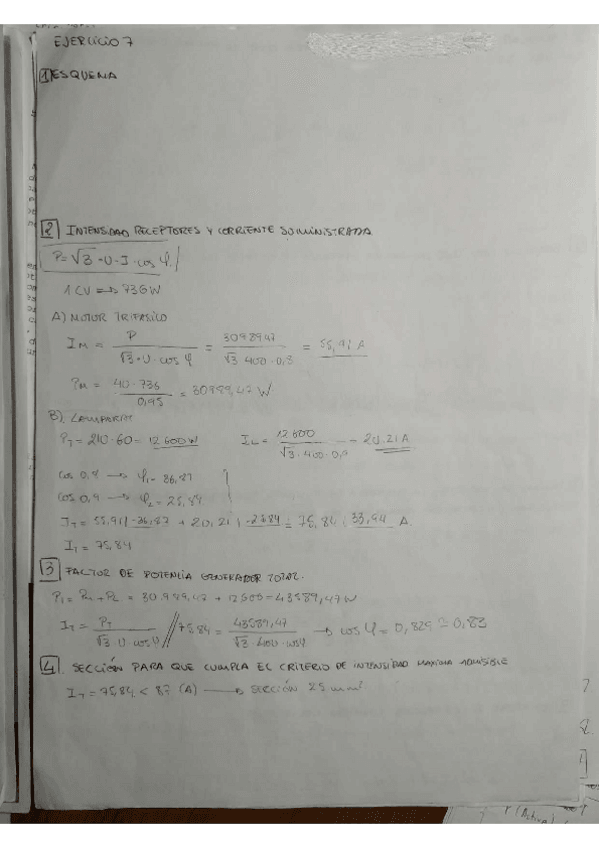 EJERCICIO 7
1) ESQUEMA
2 INTENSIDAD RECEPTORES Y CORRIENTE SUMINISTRADA
P = √3 · U · I · cos φ
1 CV => 736 W
A) MOTOR TRIFASICO
I_M = P / (√3 · U · cos φ) = 3098947 / (√3 · 400 · 0,8) = 55,91 A
P_M = (40 · 736) / 0,95 = 30989,47 W
B) LAMPARAS
P_T = 210 · 60 = 12600 W I_L = 12600 / (√3 · 400 · 0,9) = 20.21 A
cos 0,8 → φ1 = 36,87
cos 0,9 → φ2 = 25,84
I_T = 55,91 |-36,87 + 20,21 |-25,84 = 75,84 | 33,94 A.
I_T = 75,84
3 FACTOR DE POTENCIA GENERADOR TOTAL.
P_T = P_M + P_L = 30.989,47 + 12600 = 43589,47 W
I_T = P_T / (√3 U · cos φ) // 75,84 = 43589,47 / (√3 400 · cos φ) → cos φ = 0,829 ≈ 0,83
4. SECCIÓN PARA QUE CUMPLA EL CRITERIO DE INTENSIDAD MAXIMA ADMISIBLE
I_T = 75,84 < 87 (A) → SECCIÓN 25 mm²